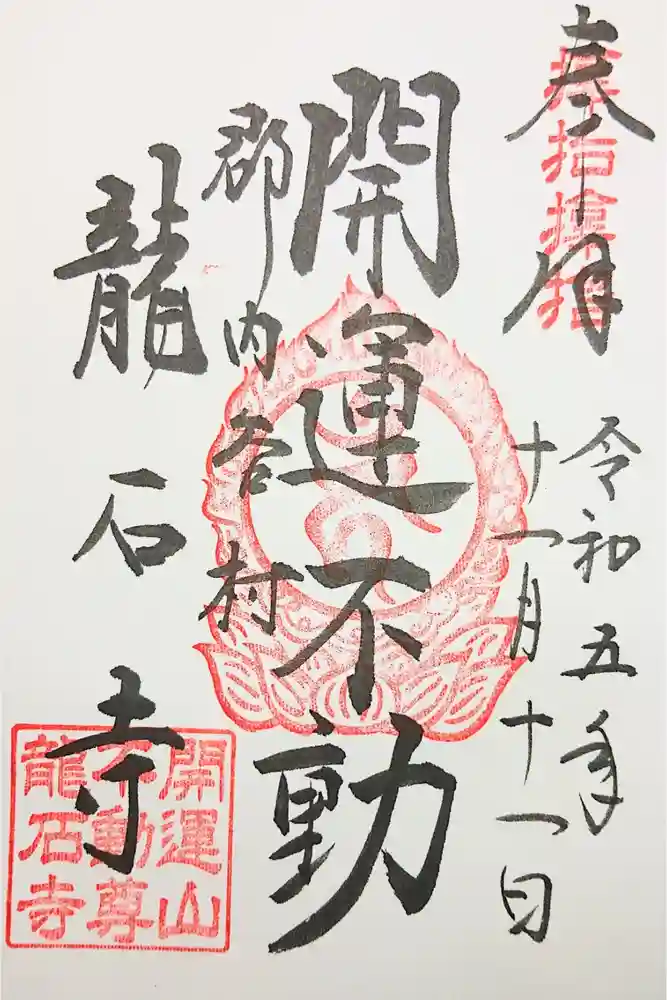 奉拝
令和五年
十一月十一日
開運不動
郡内谷村
龍石寺
開運山
不動尊
龍石寺